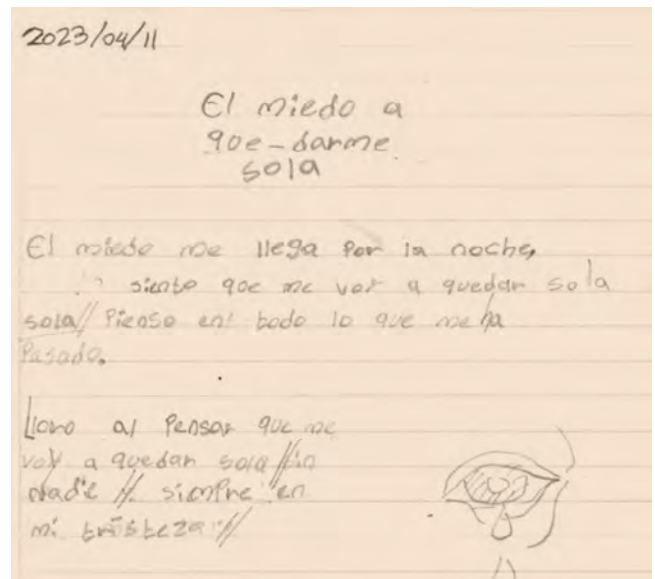 2023/04/11
El miedo a
que-darme
sola
El miedo me llega por la noche,
siento que me voy a quedar sola
sola// Pienso en todo lo que me ha
Pasado.
Lloro al Pensar que me
voy a quedar sola //sin
nadie //. siempre en
mi tristeza //